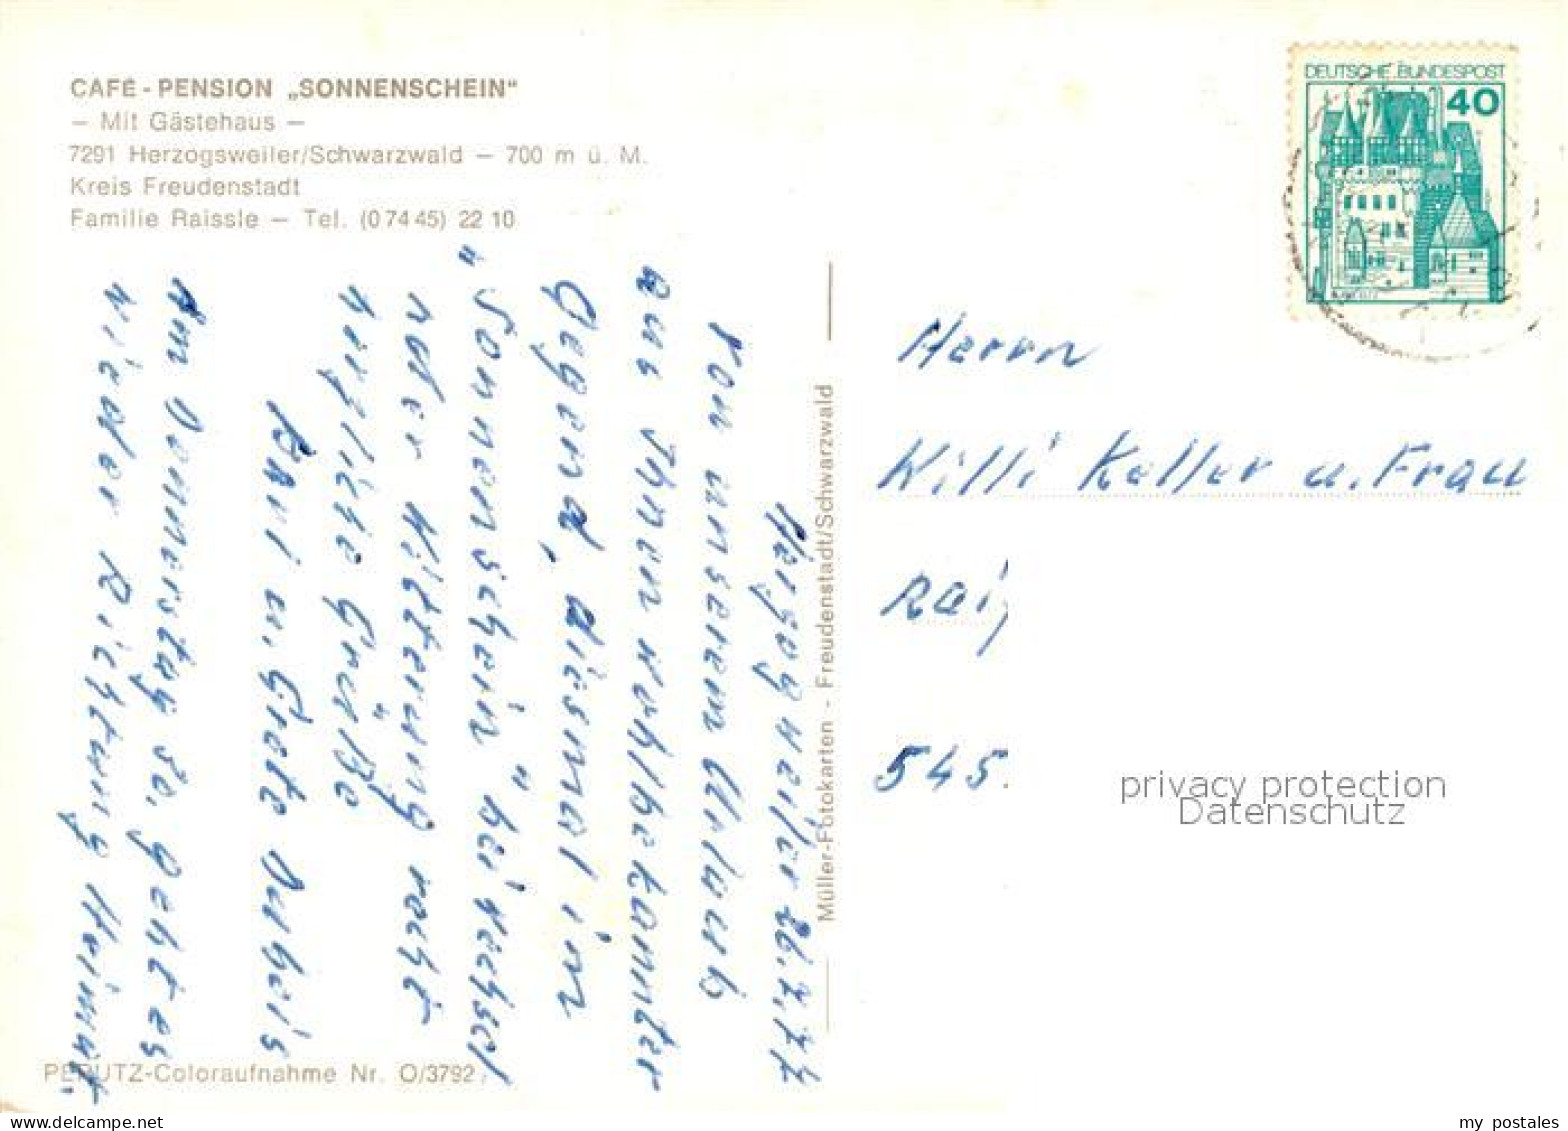 CAFÉ - PENSION „SONNENSCHEIN"
— Mit Gästehaus —
7291 Herzogsweiler/Schwarzwald — 700 m ü. M.
Kreis Freudenstadt
Familie Raissle — Tel. (0 74 45) 22 10
Herzogweiler 26.7.77
Von unserem Urlaub
aus Ihnen wohlbekannter
Gegend, diesmal im
„Sonnenschein" bei wechsel
nder Witterung recht
herzliche Grüße
Paul u. Grete Dubois
Am Donnerstag 30. geht es
wieder Richtung Heimat.
PERUTZ-Coloraufnahme Nr. O/3792
Müller-Fotokarten - Freudenstadt/Schwarzwald
DEUTSCHE BUNDESPOST
40
Herrn
Willi Keller u. Frau
545
privacy protection
Datenschutz
my postales